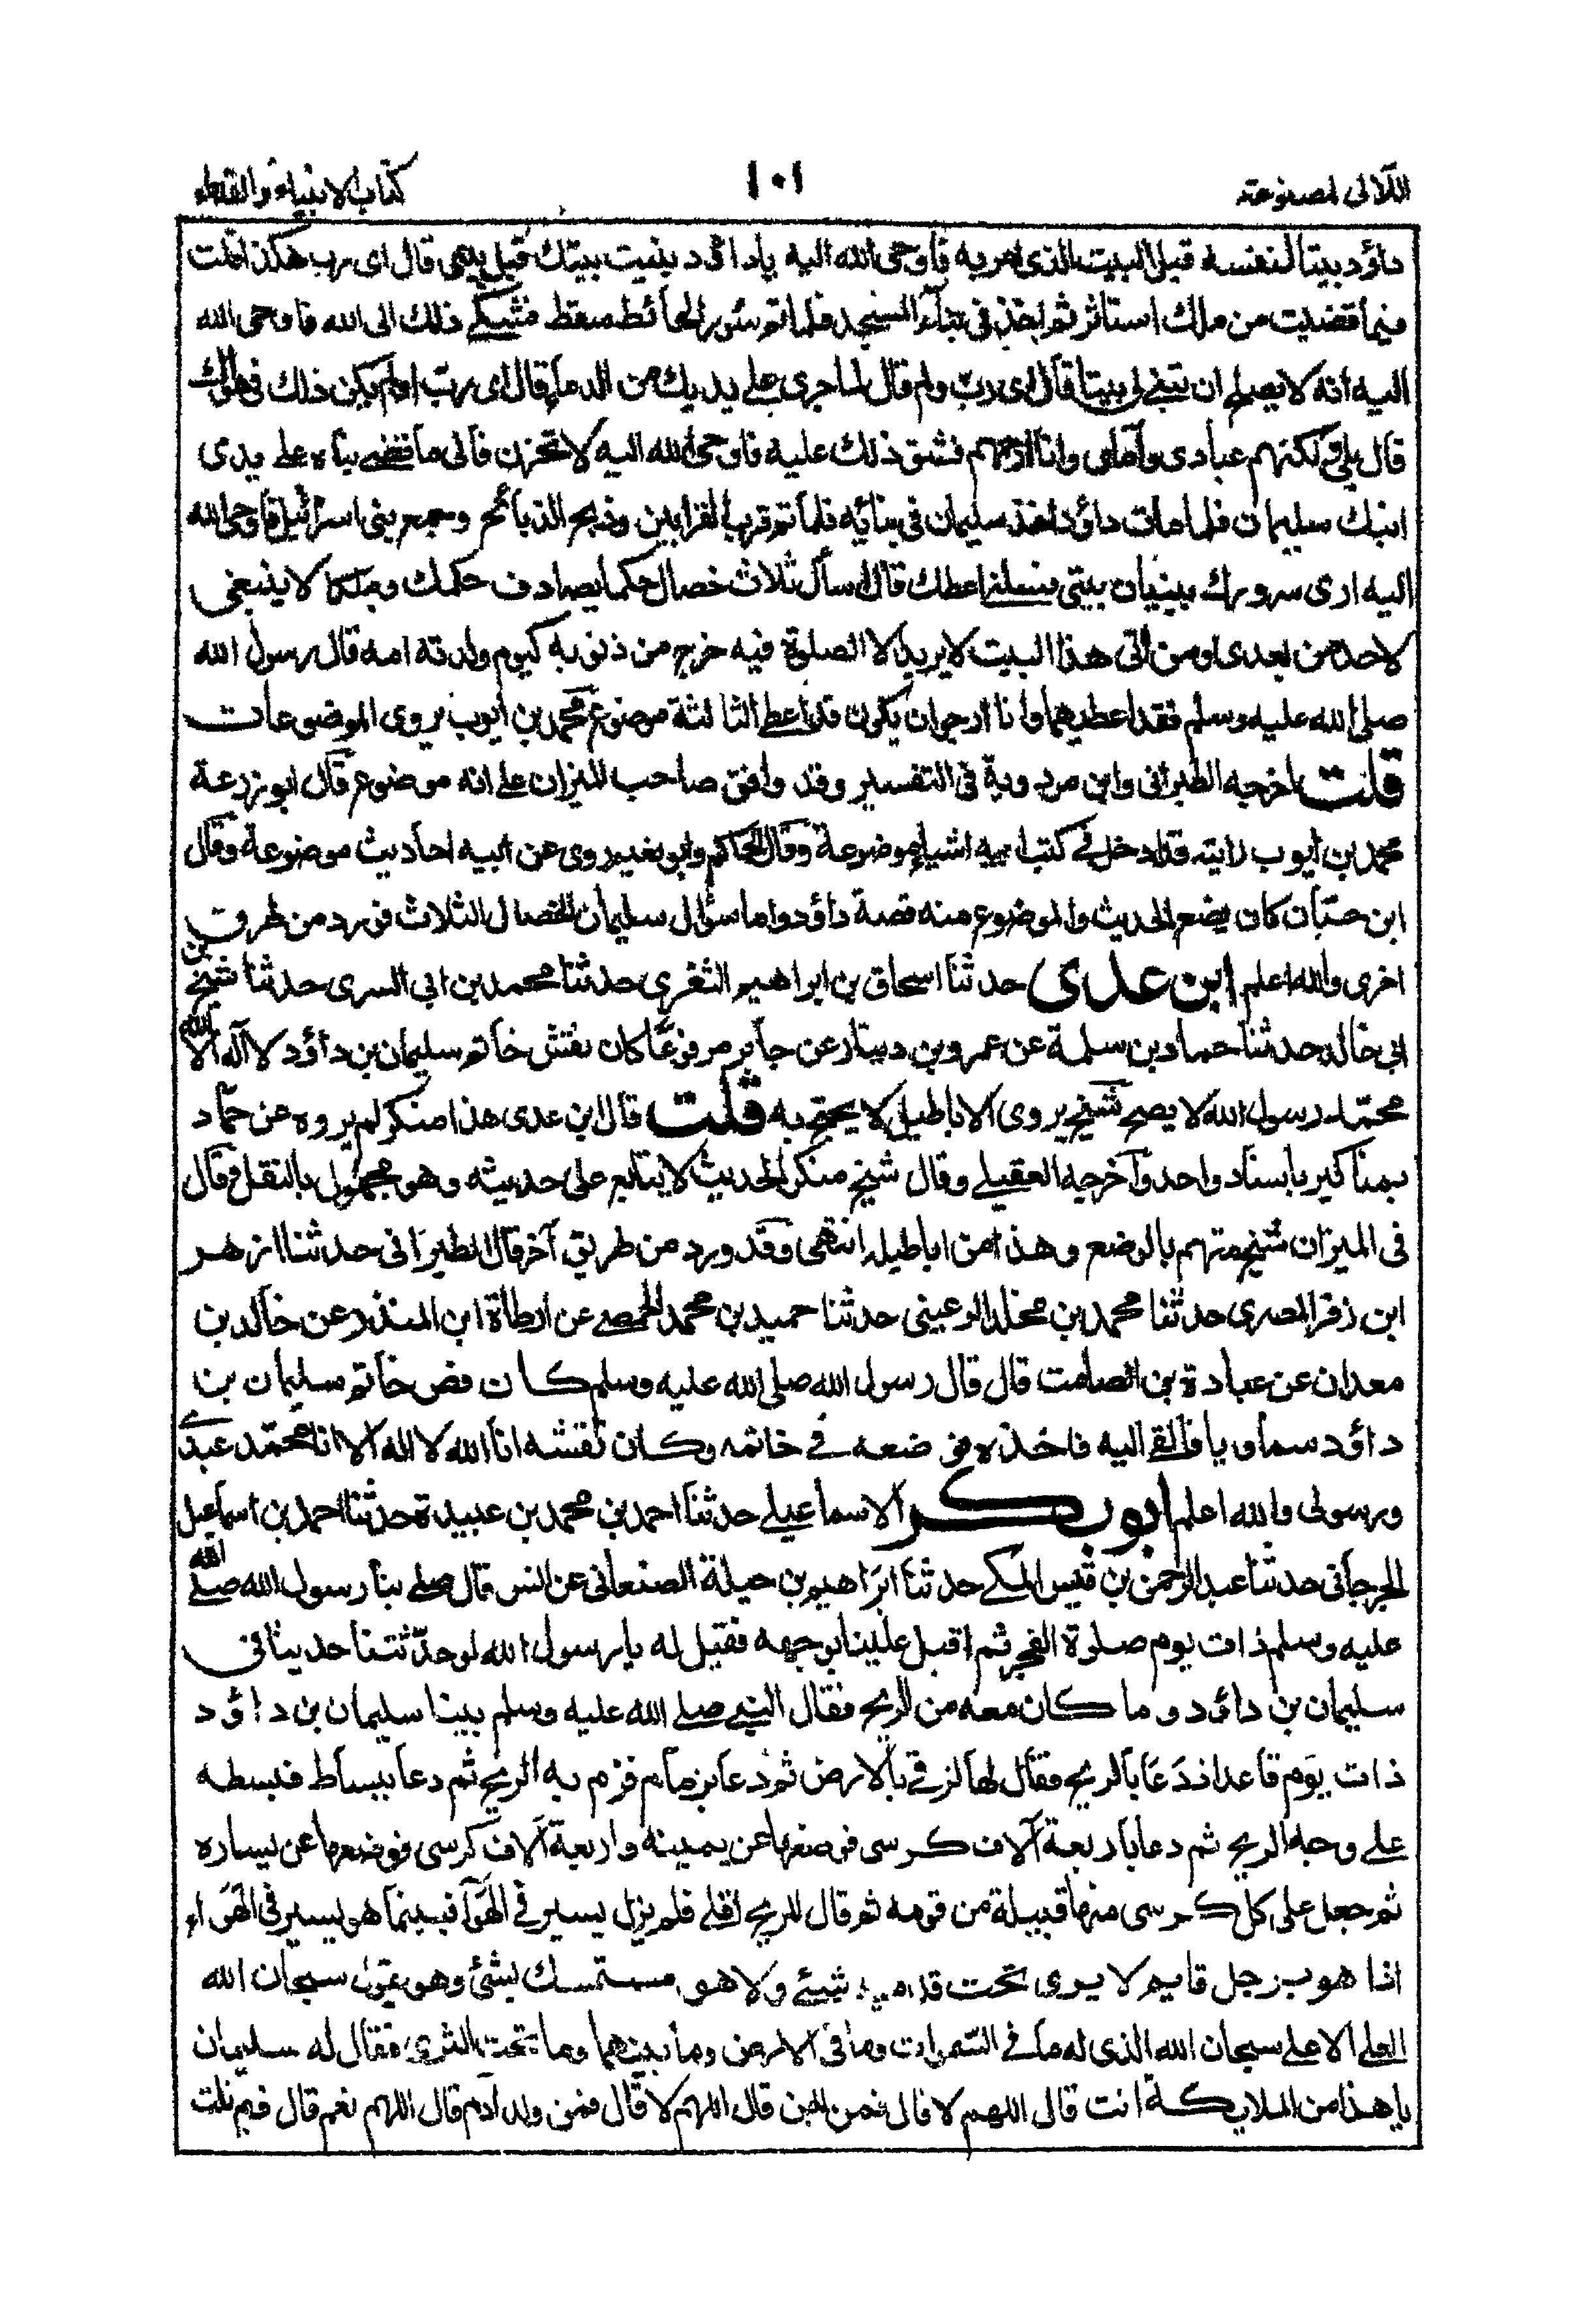 اللآلى لمصنوعة ١٠١ كتاب الانبياء والقدماء
داؤد بيتا لنفسه قبل البيت الذى امر به فاوحى الله اليه ياداؤد بنيت بيتك قبل بيتى قال اى رب هكذا قلت
فيما قضيت من ملك استاثر ثم اخذ فى بناء المسجد فلما تم سور الحائط سقط فشكى ذلك الى الله فاوحى الله
اليه انه لا يصلح ان تبنى لى بيتا قال اى رب ولم قال لما جرى على يديك من الدماء قال اى رب اولم يكن ذلك فى هواك
قال بلى ولكنهم عبادى وامائى وانا ارحمهم فشق ذلك عليه فاوحى الله اليه لا تحزن فانى ساقضى بناه على يدى
ابنك سليمان فلما مات داؤد اخذ سليمان فى بنائه فلما تم قرب القرابين وذبح الذبائح وجمع بنى اسرائيل فاوحى الله
اليه ارى سرورك ببنيان بيتى فسلنى اعطك قال اسأل ثلاث خصال حكما يصادف حكمك وملكا لا ينبغى
لاحد من بعدى ومن اتى هذا البيت لا يريد الا الصلوة فيه خرج من ذنوبه كيوم ولدته امه قال رسول الله
صلى الله عليه وسلم فقد اعطيهما وانا ارجو ان يكون قد اعطى الثالثة موضوع محمد بن ايوب يروى الموضوعات
قلت اخرجه الطبرانى وابن مردوية فى التفسير وقد وافق صاحب الميزان على انه موضوع قال ابو زرعة
محمد بن ايوب رايته قد ادخل فى كتب ابيه اشياء موضوعة وقال الحاكم وابو نعيم روى عن ابيه احاديث موضوعة وقال
ابن حبان كان يضع الحديث والموضوع منه قصة داؤد واما سؤال سليمان الخصال الثلاث فورد من طرق
اخرى والله اعلم ابن عدى حدثنا اسحاق بن ابراهيم الثغرى حدثنا محمد بن ابى السرى حدثنا شيخ بن
ابى خالد حدثنا حماد بن سلمة عن عمرو بن دينار عن جابر مرفوعا كان نقش خاتم سليمان بن داؤد لا اله الا الله
محمد رسول الله لا يصح شيخ يروى الاباطيل لا يحتج به قلت قال ابن عدى هذا منكر لم يروه عن حماد
بمناكير باسناد واحد واخرجه العقيلى وقال شيخ منكر الحديث لا يتابع على حديثه وهو مجهول بالنقل وقال
فى الميزان شيخ متهم بالوضع وهذا من اباطيله انتهى وقد ورد من طريق آخر قال الطبرانى حدثنا ازهر
ابن زفر المصرى حدثنا محمد بن مخلد الرعينى حدثنا حميد بن محمد الحمصى عن ارطاة ابن المنذر عن خالد بن
معدان عن عبادة بن الصامت قال قال رسول الله صلى الله عليه وسلم كان فص خاتم سليمان بن
داؤد سماويا فالقى اليه فاخذه فوضعه فى خاتمه وكان نقشه انا الله لا اله الا انا محمد عبدى
ورسولى والله اعلم ابو بكر الاسماعيلى حدثنا احمد بن محمد بن عبيدة حدثنا احمد بن اسماعيل
الجرجانى حدثنا عبد الرحمن بن قيس المكى حدثنا ابراهيم بن حيلة الصنعانى عن انس قال صلى بنا رسول الله صلى الله
عليه وسلم ذات يوم صلوة الفجر ثم اقبل علينا بوجهه فقيل له يا رسول الله لو حدثتنا حديثا فى
سليمان بن داؤد وما كان معه من الريح فقال النبى صلى الله عليه وسلم بينا سليمان بن داؤد
ذات يوم قاعد اذ دعا بالريح فقال لها الزقى بالارض ثم دعا بزمام فزم به الريح ثم دعا ببساط فبسطه
على وجه الريح ثم دعا باربعة آلاف كرسى فوضعها عن يمينه واربعة آلاف كرسى فوضعها عن يساره
ثم جعل على كل كرسى منها قبيلة من قومه ثم قال للريح اقلى فلم يزل يسير فى الهوآ فبينما هو يسير فى الهواء
اذا هو برجل قايم لا يرى تحت قدميه شيئے ولا هو مستمسك بشئ وهو يقول سبحان الله
العلى الاعلى سبحان الله الذى له ما فى السموات وما فى الارض وما بينهما وما تحت الثرى فقال له سليمان
يا هذا من الملايكة انت قال اللهم لا قال فمن الجن قال اللهم لا قال فمن ولد آدم قال اللهم نعم قال فبم نلت